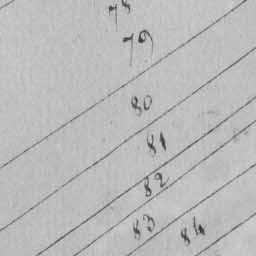 78
79
80
81
82
83
84